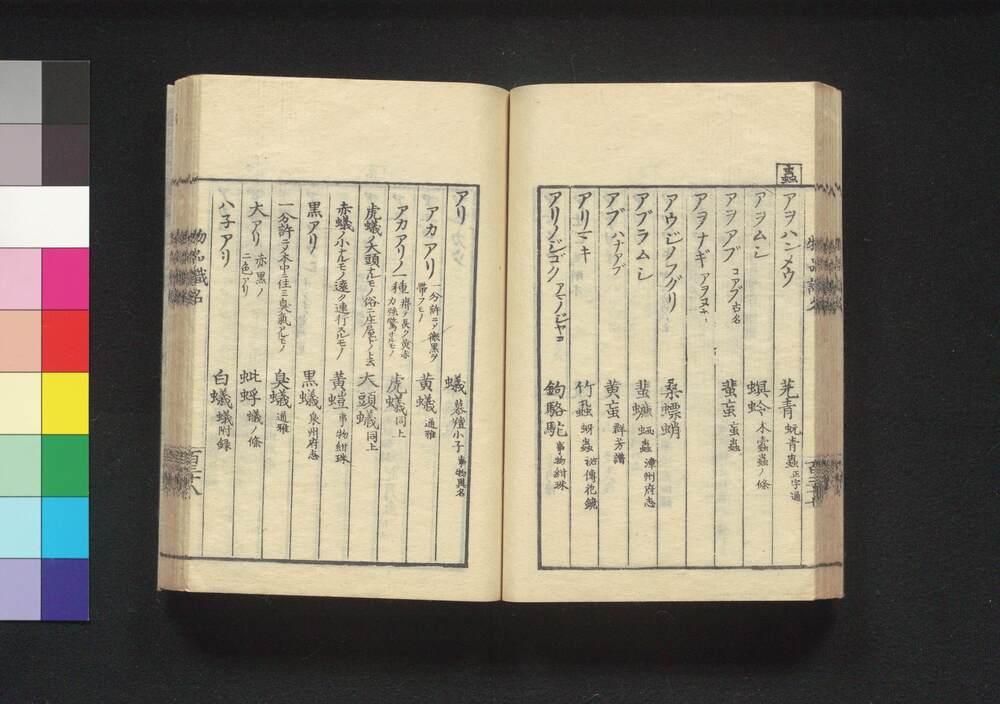 蟲
アヲハンメウ 芫青 蚖青蟲 正字通
アヲムシ 螟蛉 木蠹蟲ノ條
アヲアブ コアブ 古名 蜚䖟 䖟蟲
アヲナギ
アウジノフグリ 桑螵蛸
アブラムシ 蜚蠊 蟲 漳州府志
アブ ハナアブ 黄䖟 群芳譜
アリマキ 竹蝨 蚜蟲 祕傳花鏡
アリノジゴク 鉤駱駝 事物紺珠
アリ 蟻 慕羶小子 事物異名
アカアリ 一分許ニメ微黒ヲ帶フモノ 黄蟻 通雅
アカアリノ一種 虎蟻 同上
虎蟻ノ大頭ナルモノ俗ニ庄屋ドノト云 大頭蟻 同上
赤蟻ノ小ナルモノ遠ク連行スルモノ 黄螘 事物紺珠
黒アリ 黒蟻 泉州府志
一分許ニメ木中ニ住ミ臭氣アルモノ 臭蟻 通雅
大アリ 赤黒ノ二色アリ 蚍蜉 蟻ノ條
ハ子アリ 白蟻 蟻附録
物品識名